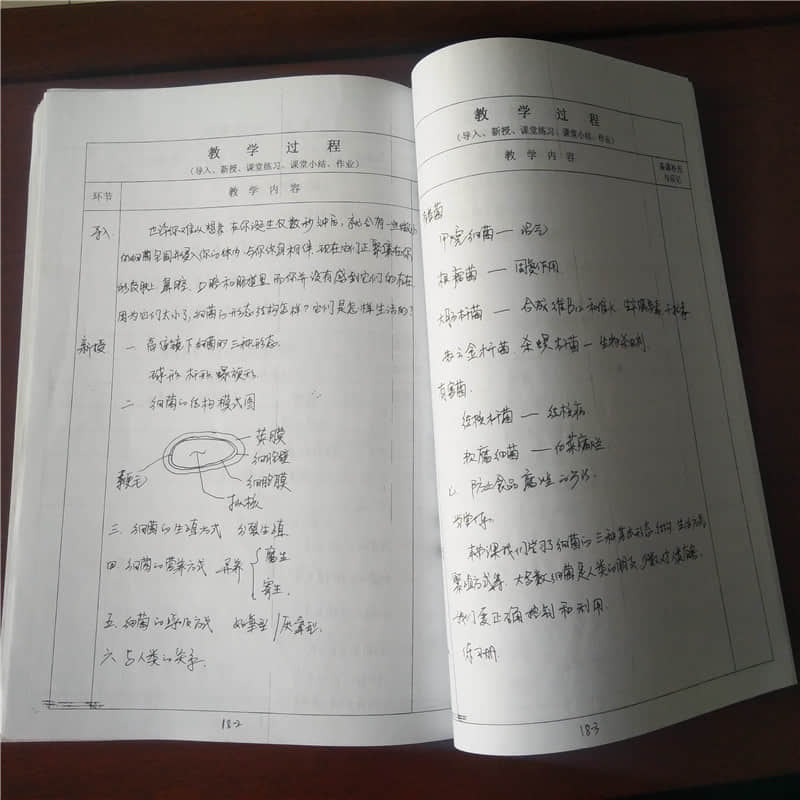 教 学 过 程
(导入、新授、课堂练习、课堂小结、作业)
环节
教 学 内 容
导入
也许你难以想象 在你诞生仅数秒钟后,就会有一些
的细菌 侵入你的体内 与你终身相伴.现在它们正聚集在你
的皮肤上 鼻腔、口腔和肠道里 而你并没有感到它们的存在
因为它们太小了,细菌的形态结构怎样?它们是怎样生活的?
新授
一 高倍镜下细菌的三种形态.
球形 杆形 螺旋形.
二 细菌的结构模式图
荚膜
细胞壁
细胞膜
鞭毛
拟核
三.细菌的生殖方式 分裂生殖
四.细菌的营养方式 异养
腐生
寄生.
五.细菌的呼吸方式 好氧型/厌氧型.
六 与人类的关系.
18-2
教 学 过 程
(导入、新授、课堂练习、课堂小结、作业)
教 学 内 容
备课补充
与后记
甲烷细菌 — 沼气
根瘤菌 — 固氮作用
大肠杆菌 — 合成维B12和维K
苏云金杆菌、杀螟杆菌 — 生物杀虫剂.
有害菌.
结核杆菌 — 结核病
软腐细菌 — 白菜腐烂
七 防止食品腐烂的方法
当堂
本课我们学习了细菌的三种 形态 结构 生活方式
繁殖方式等.大多数细菌是人类的朋友 少数对人类有害.
我们要正确控制和利用.
练习册.
18-3